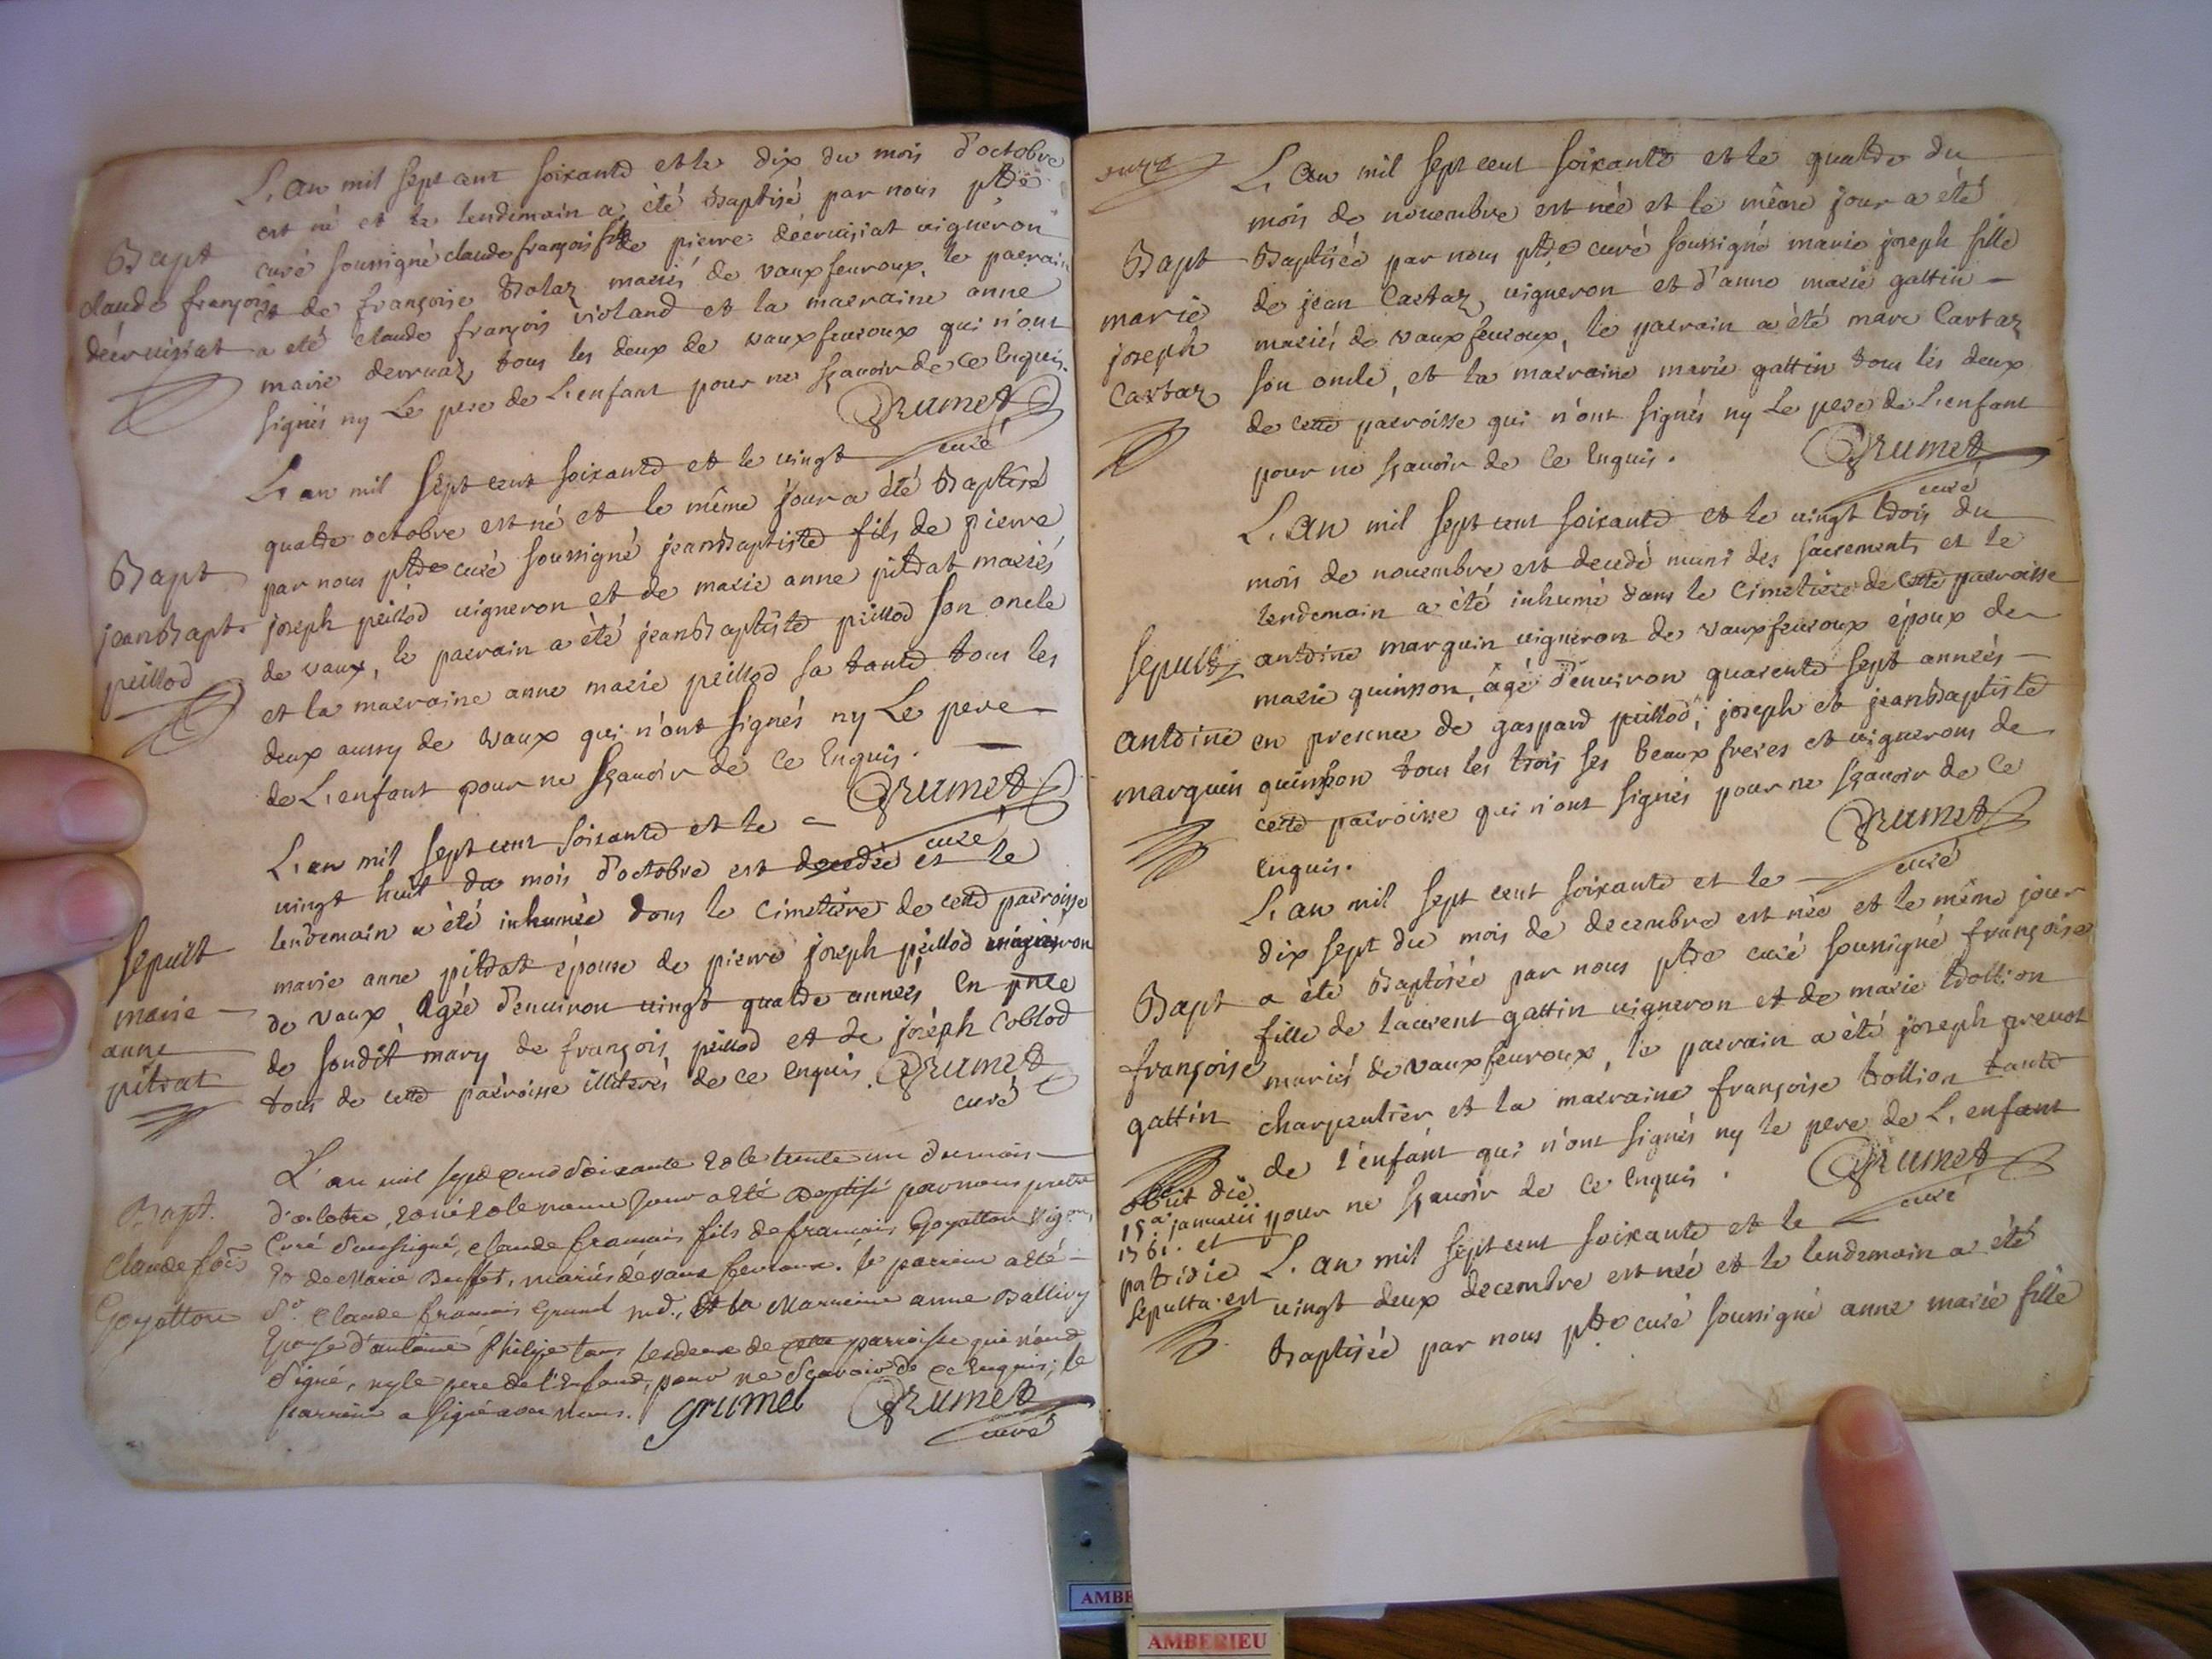 L'an mil sept cent soixante et le dix du mois d'octobre
est né et le lendemain a été Baptisé par nous ptre
curé soussigné claude françois fils de pierre décruisiat vigneron
et de françoise Bolaz mariés de vauxfeuroux, le parrain
a été claude françois violand et la marraine anne
marie derruaz tous les deux de vauxfeuroux qui n'ont
signés ny Le pere de L'enfant pour ne sçavoir de ce Enquis.
Grumet
curé
Bapt
claude françois
décruisiat
L'an mil sept cent soixante et le vingt
quatre octobre est né et le même jour a été Baptisé
par nous ptre curé soussigné jeanBaptiste fils de pierre
joseph peillod vigneron et de marie anne pitrat mariés
de vaux, le parrain a été jeanBaptiste peillod son oncle
et la marraine anne marie peillod sa tante tous les
deux aussy de vaux qui n'ont signés ny Le pere
de L'enfant pour ne sçavoir de ce Enquis.
Grumet
curé
Bapt
jeanBapt.
peillod
L'an mil sept cent soixante et le
vingt huit du mois d'octobre est decedée et le
lendemain a été inhumée dans le Cimetiere de cette parroisse
marie anne pitrat épouse de pierre joseph peillod vigneron
de vaux Agée d'environ vingt quatre années En pnce
de sondit mary de françois peillod et de joseph Coblod
tous de cette parroisse illiterés de ce Enquis. Grumet
curé
sepult
marie
anne
pitrat
L'an mil sept cent soixante & le trente un du mois
d'octobre, est né & le meme jour a été Baptisé par nous pretre
Curé soussigné, claude francois fils de francois Goyatton vigon,
& de Marie Buffet, mariés de vaux fevroux. le parrein a été
Sr. Claude francois Grumel md., Et la Marreine anne Ballivy
Epouse d'antoine Philipe tous les deux de cette parroisse qui n'ont
signé, ny le pere de l'Enfant, pour ne sçavoir de ce Enquis; le
parrein a signé avec nous. Grumel Grumet
curé
Bapt.
Claude fois
Goyatton
L'an mil sept cent soixante et le quatre du
mois de novembre est née et le même jour a été
Baptisée par nous ptre curé soussigné marie joseph fille
de jean Cartaz vigneron et d'anne marie gattin
mariés de vauxfeuroux, le parrain a été marc Cartaz
son oncle, et la marraine marie gattin tous les deux
de cette parroisse qui n'ont signés ny Le pere de L'enfant
pour ne sçavoir de ce Enquis.
Grumet
curé
Bapt
marie
joseph
Cartaz
L'an mil sept cent soixante et le vingt trois du
mois de novembre est decedé muni des sacrements et le
lendemain a été inhumé dans le Cimetiere de cette parroisse
antoine marguin vigneron de vauxfeuroux époux de
marie quinson, âgé d'environ quarente sept années
en presence de gaspard peillod, joseph et jeanBaptiste
quinson tous les trois ses beaux freres et vignerons de
cette parroisse qui n'ont signés pour ne sçavoir de ce
Enquis.
Grumet
curé
sepult
antoine
marguin
L'an mil sept cent soixante et le
dix sept du mois de decembre est née et le même jour
a été Baptisée par nous ptre curé soussigné françoise
fille de laurent gattin vigneron et de marie trollion
mariés de vauxfeuroux, le parrain a été joseph grenot
charpentier et la marraine françoise trollion tante
de l'enfant qui n'ont signés ny le pere de L'enfant
pour ne sçavoir de ce Enquis.
Grumet
curé
Bapt
françoise
gattin
obiit die
15a januarii
1761. et
postridie
sepulta est
L'an mil sept cent soixante et le
vingt deux decembre est née et le lendemain a été
Baptisée par nous ptre curé soussigné anne marie fille
AMBE
AMBERIEU